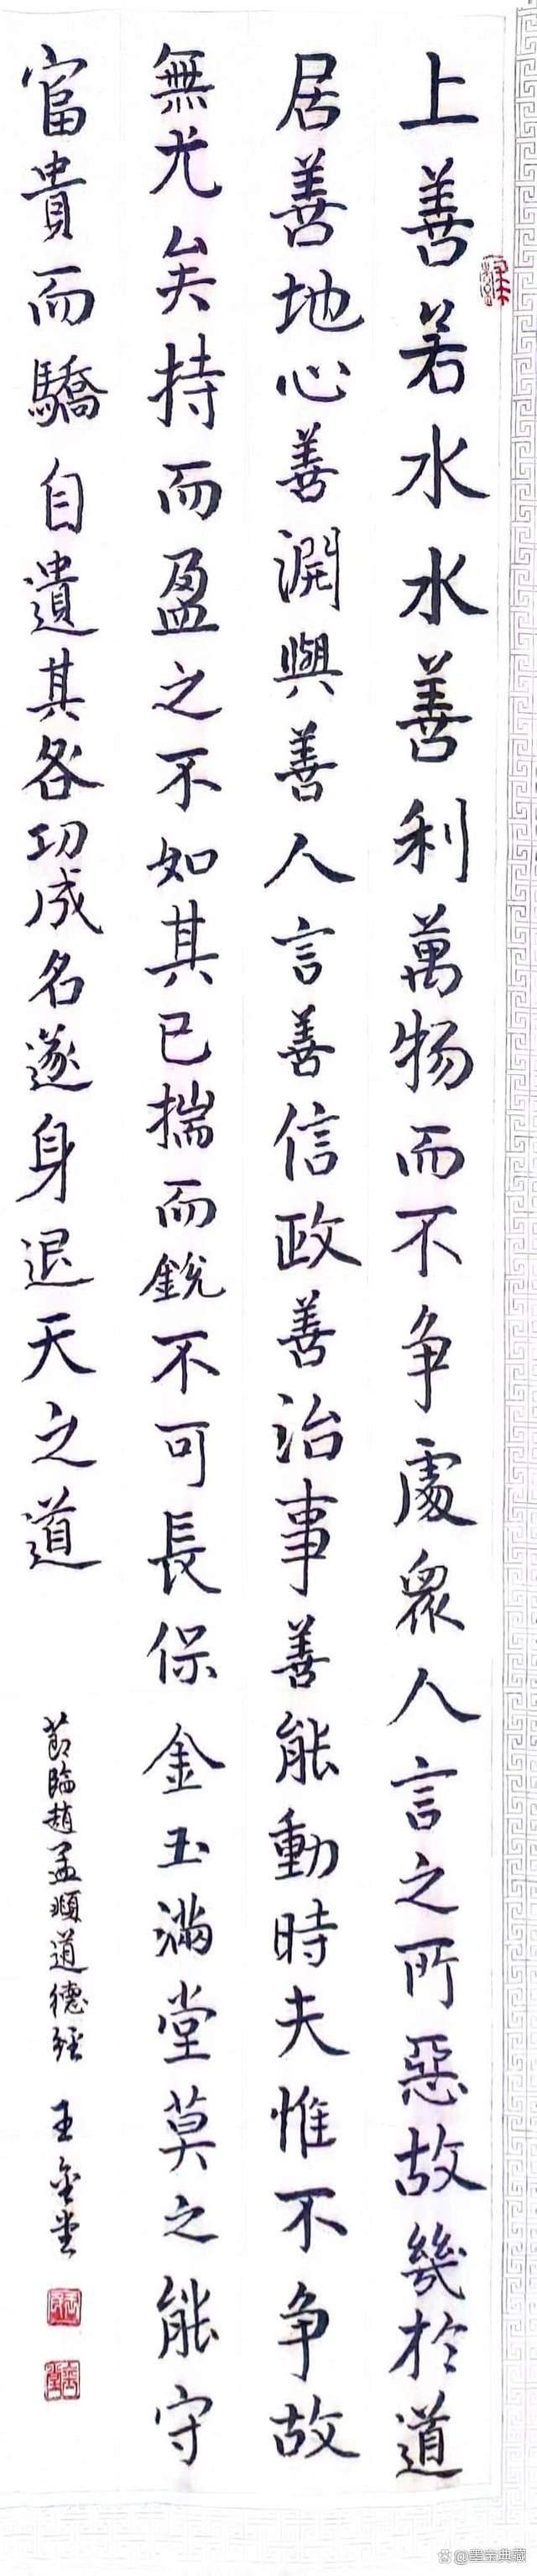 上善若水水善利萬物而不争處衆人言之所惡故幾於道
居善地心善淵與善人言善信政善治事善能動時夫惟不争故
無尤矣持而盈之不如其已揣而銳不可長保金玉滿堂莫之能守
富貴而驕自遺其咎功成名遂身退天之道
節臨趙孟頫道德經 王金堂
@墨宝典藏